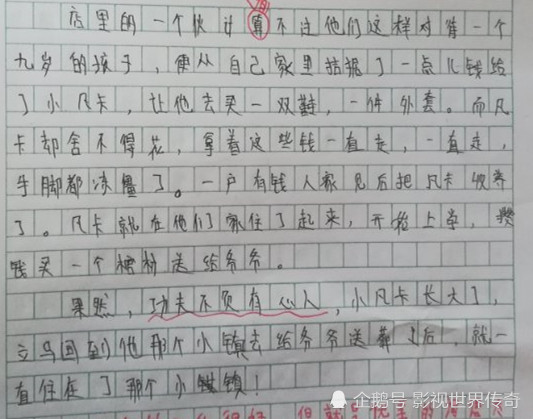 店里的一个伙计算不过他们这样对待一个
九岁的孩子，便从自己家里拮据了一点儿钱给
了小凡卡，让他去买一双鞋，一件外套。而凡
卡却舍不得花，拿着这些钱一直走，一直走，
手脚都冻僵了。一户有钱人家见后把凡卡收养
了。凡卡就在他们家住了起来，开始上学，攒
钱买一个棺材送给爷爷。
果然，功夫不负有心人，小凡卡长大了，
立马回到他那个小镇去给爷爷送葬了后，就一
直住在了那个小镇！
企鹅号 影视世界传奇